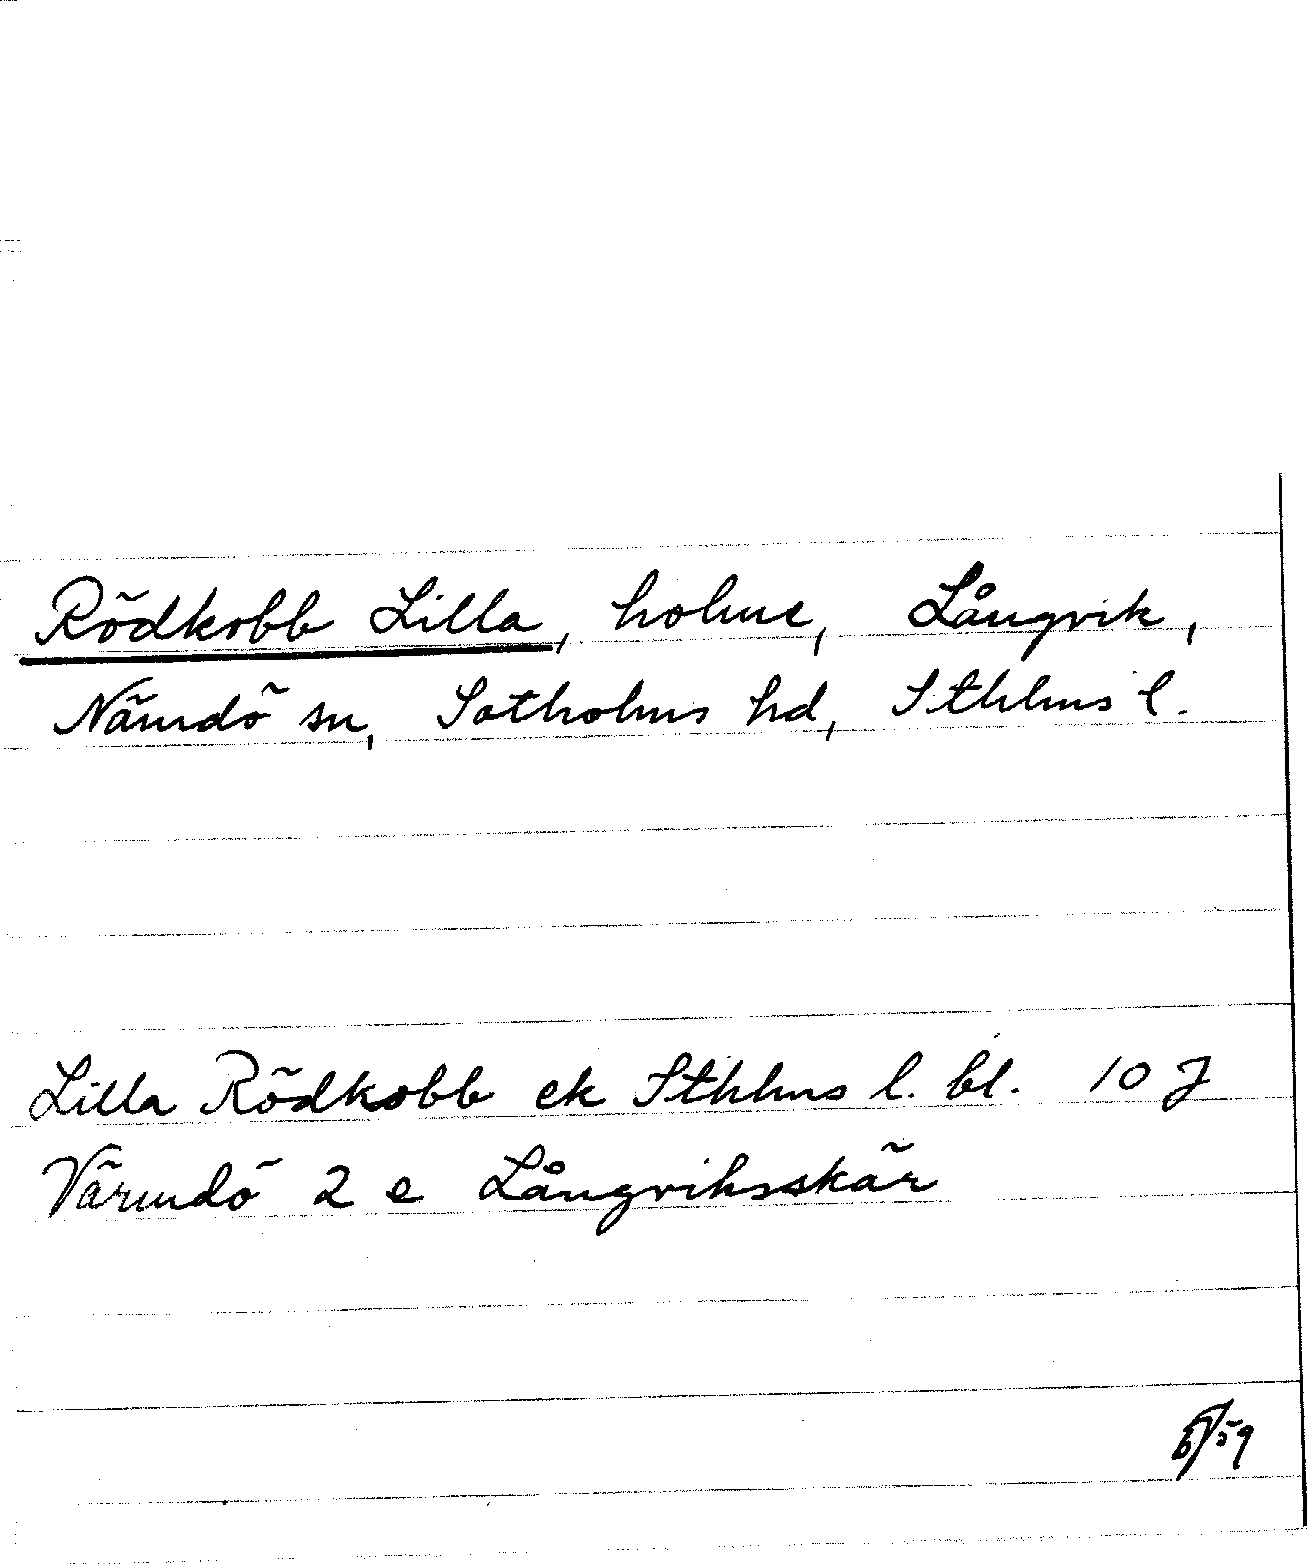 Rödkobb Lilla, holme, Långvik,
Nämdö sn, Sotholms hd, Sthlms l.
Lilla Rödkobb ek Sthlms l. bl. 10 J
Värmdö 2 e Långviksskär